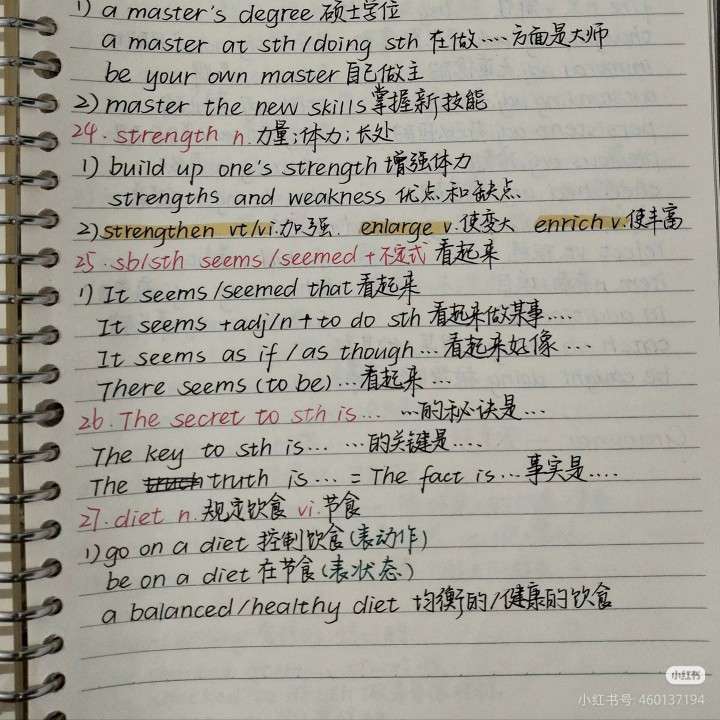 1) a master's degree 硕士学位
a master at sth/doing sth 在做....方面是大师
be your own master 自己做主
2) master the new skills 掌握新技能
24. strength n.力量;体力;长处
1) build up one's strength 增强体力
strengths and weakness 优点和缺点
2) strengthen vt/vi.加强. enlarge v.使变大 enrich v.使丰富
25. sb/sth seems/seemed + 不定式 看起来
1) It seems/seemed that 看起来
It seems +adj/n + to do sth 看起来做某事....
It seems as if / as though... 看起来好像 ...
There seems (to be) ...看起来...
26. The secret to sth is... ...的秘诀是...
The key to sth is... ...的关键是....
The truth is ... = The fact is ... 事实是....
27. diet n.规定饮食 vi.节食
1) go on a diet 控制饮食(表动作)
be on a diet 在节食(表状态)
a balanced/healthy diet 均衡的/健康的饮食
小红书
小红书号: 460137194